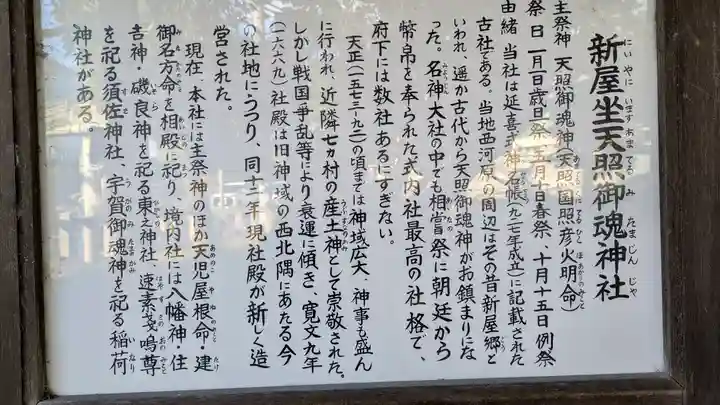 新屋坐天照御魂神社
主祭神 天照御魂神(天照国照彦火明命)
祭日 一月一日歳旦祭 五月十日春祭 十月十五日例祭
由緒 当社は延喜式神名帳(九二七年成立)に記載された
古社である。当地西河原の周辺はその昔新屋郷と
いわれ、遥か古代から天照御魂神がお鎮まりにな
った。名神大社の中でも相嘗祭に朝廷から
幣帛を奉られた式内社最高の社格で、
府下には数社あるにすぎない。
天正(一五七三〜九二)の頃までは神域広大、神事も盛ん
に行われ、近隣七ヵ村の産土神として崇敬された。
しかし戦国争乱等により衰運に傾き、寛文九年
(一六六九)社殿は旧神域の西北隅にあたる今
の社地にうつり、同十二年現社殿が新しく造
営された。
現在、本社には主祭神のほか天児屋根命・建
御名方命を相殿に祀り、境内社には八幡神・住
吉神・磯良神を祀る東之神社、速素戔嗚尊
を祀る須佐神社、宇賀御魂神を祀る稲荷
神社がある。